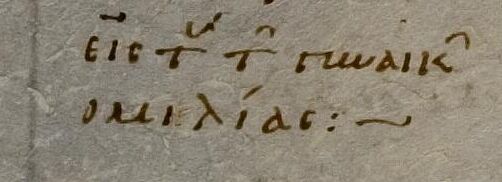 εἰς τ τ̑ γυναικ̑
ὁμιλίας:~